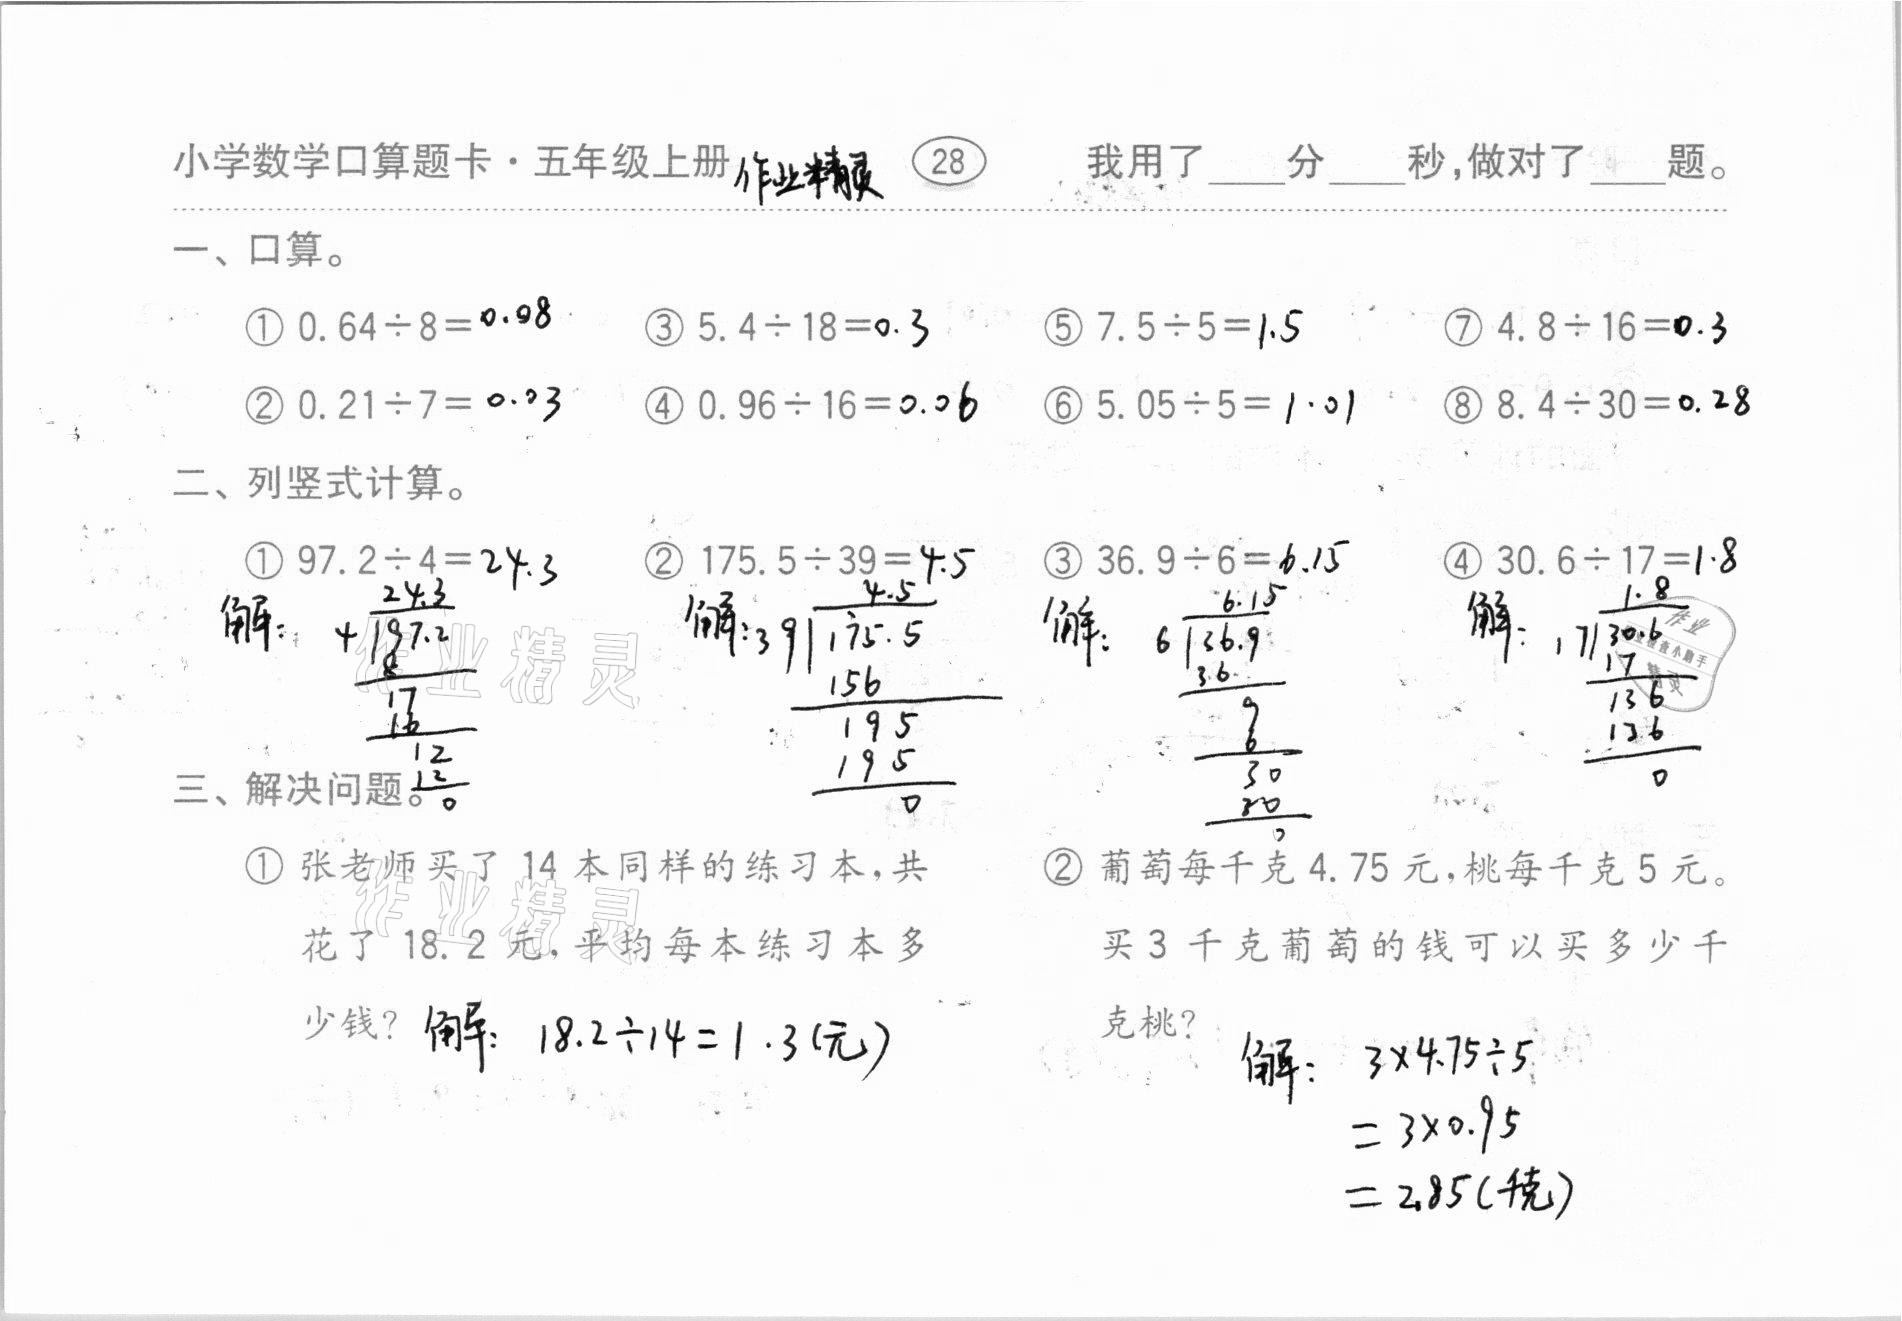 小学数学口算题卡·五年级上册 作业精灵 28 我用了____分____秒,做对了____题。
一、口算。
① 0.64÷8=0.08 ③ 5.4÷18=0.3 ⑤ 7.5÷5=1.5 ⑦ 4.8÷16=0.3
② 0.21÷7=0.03 ④ 0.96÷16=0.06 ⑥ 5.05÷5=1.01 ⑧ 8.4÷30=0.28
二、列竖式计算。
① 97.2÷4=24.3 ② 175.5÷39=4.5 ③ 36.9÷6=6.15 ④ 30.6÷17=1.8
24.3 4.5 6.15 1.8
解: 4 97.2 解: 39 175.5 解: 6 36.9 解: 17 30.6
8 156 36 17
17 195 9 136
16 195 6 136
12 0 30 0
12 30
0 0
三、解决问题。
① 张老师买了 14 本同样的练习本,共
花了 18.2 元,平均每本练习本多
少钱? 解: 18.2÷14=1.3(元)
② 葡萄每千克 4.75 元,桃每千克 5 元。
买 3 千克葡萄的钱可以买多少千
克桃?
解: 3×4.75÷5
=3×0.95
=2.85(千克)
作业精灵
作业精灵
作业
检查小助手
精灵